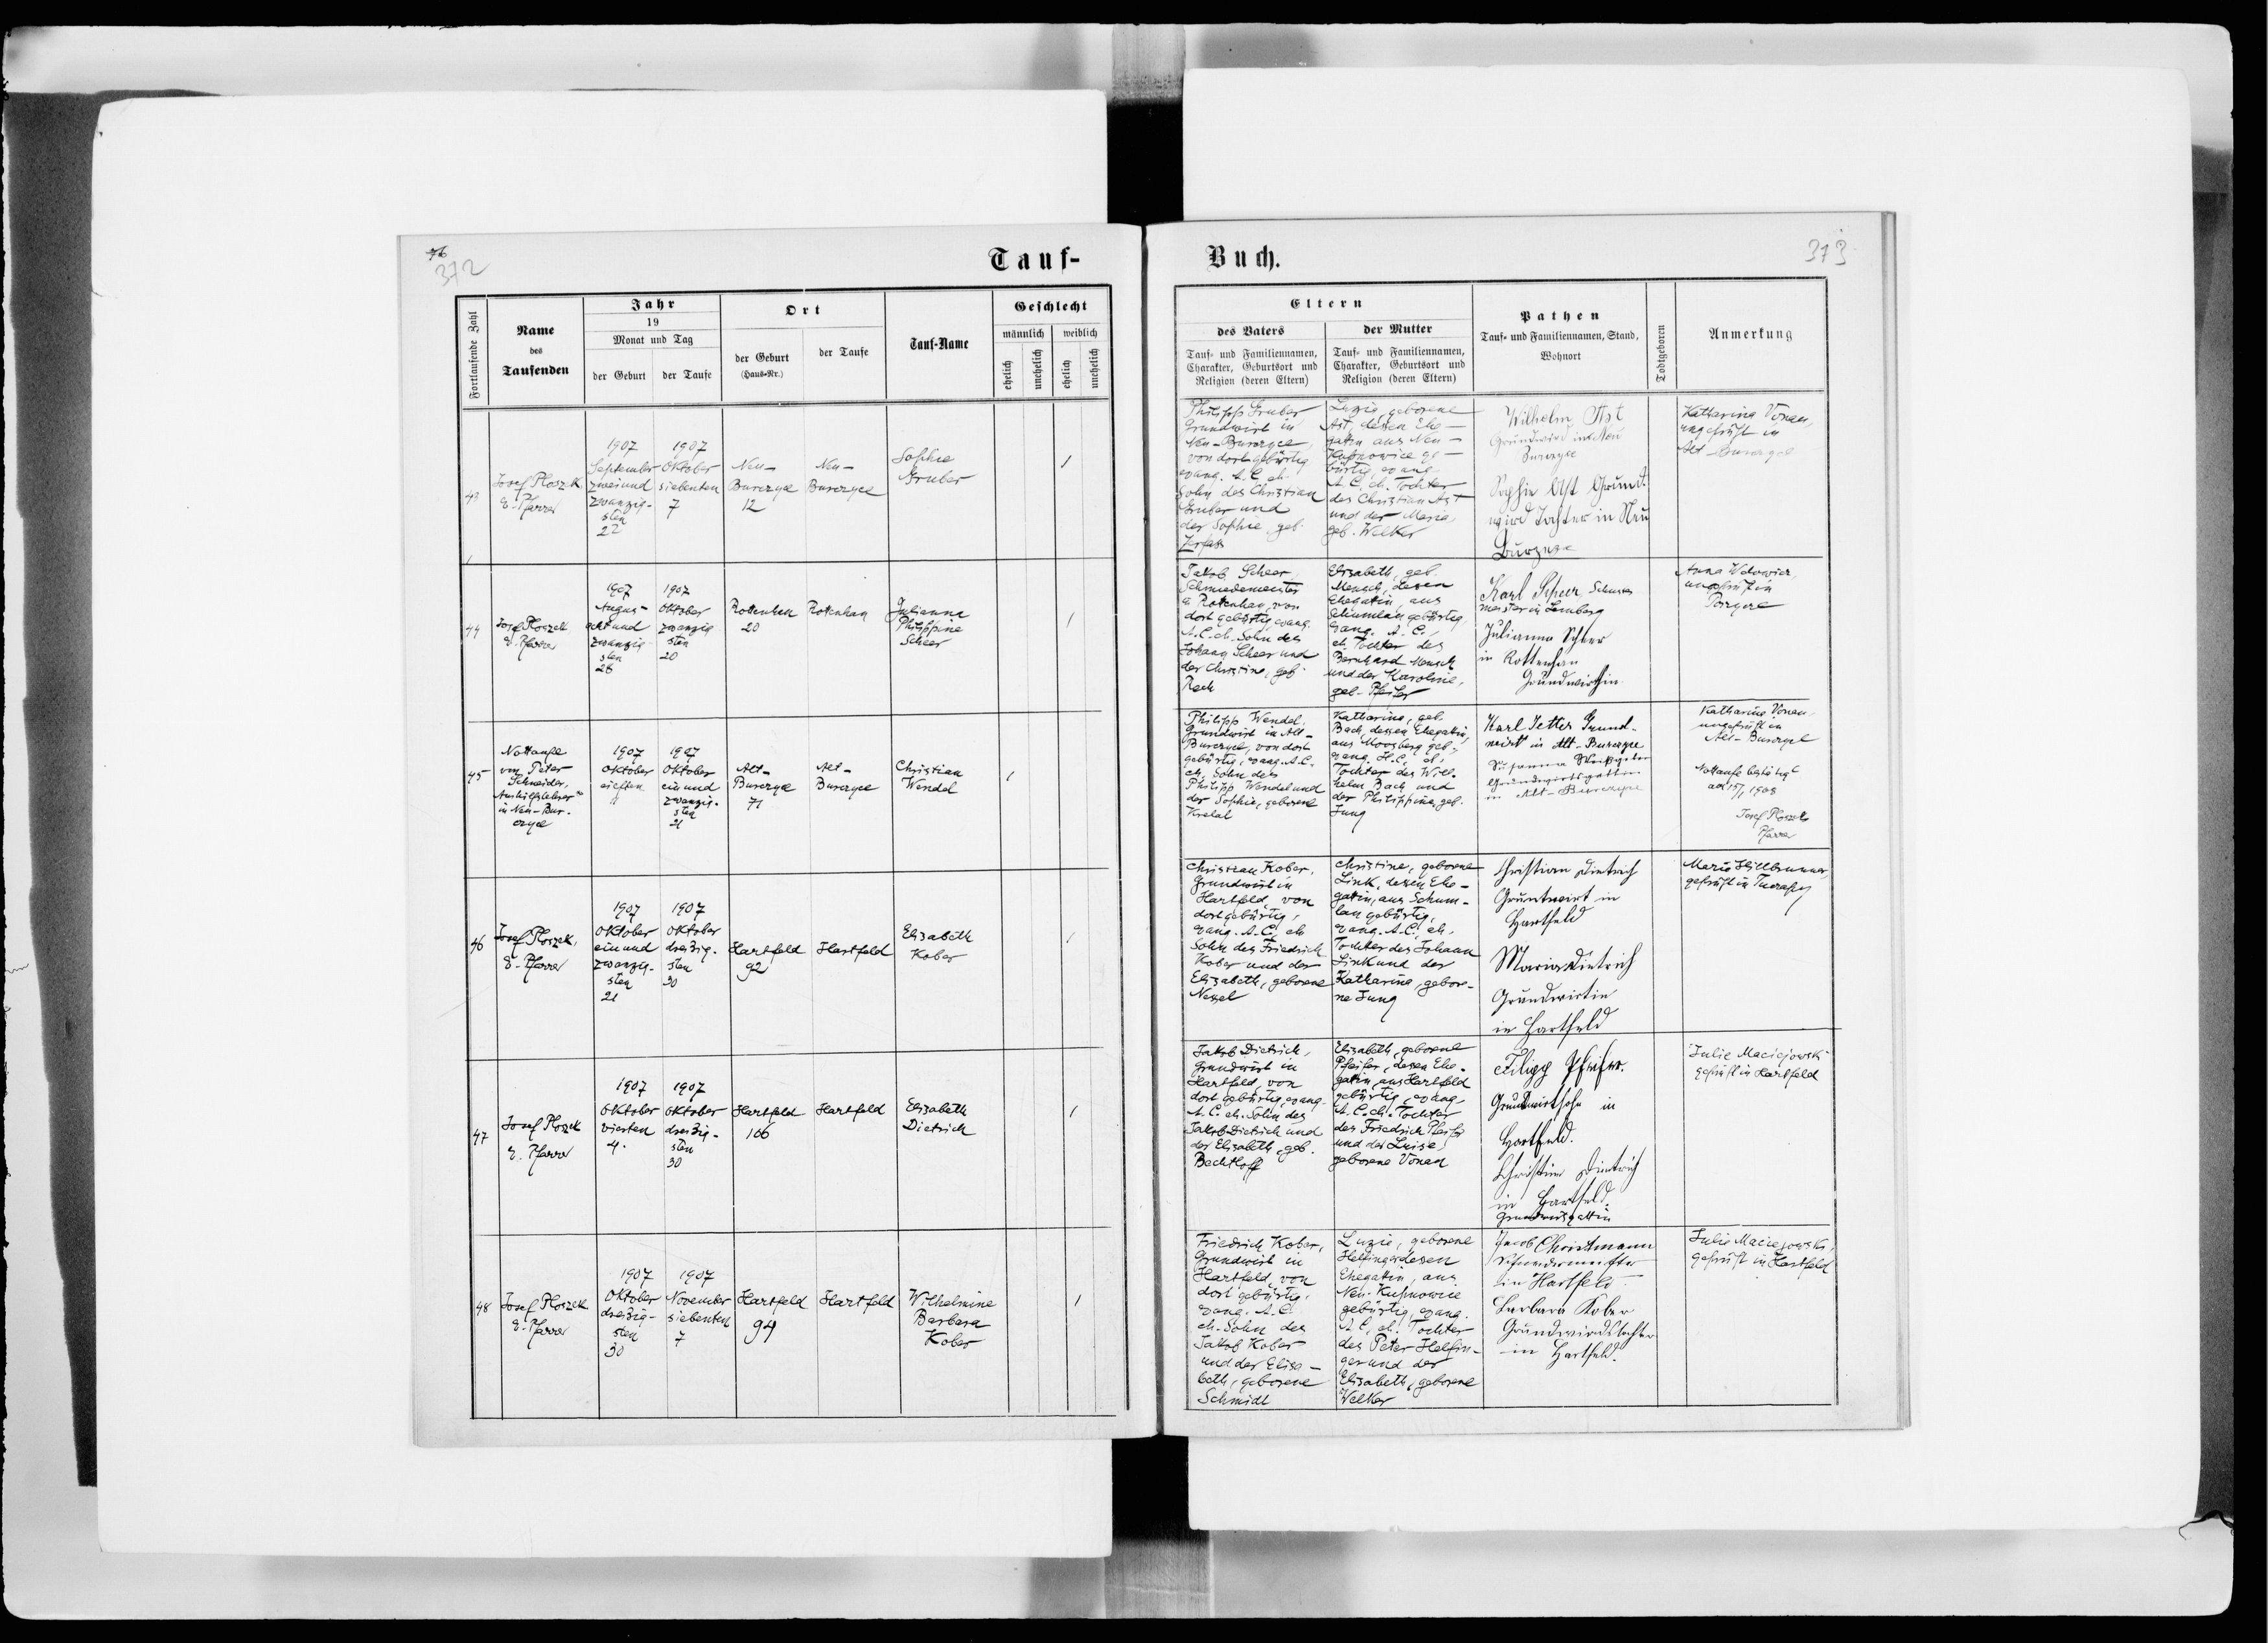 372
Tauf-
Fortlaufende Zahl
Name
des
Taufenden
Jahr
19
Monat und Tag
der Geburt
der Taufe
Ort
der Geburt
(Haus-Nr.)
der Taufe
Tauf-Name
Geschlecht
männlich
weiblich
ehelich
unehelich
ehelich
unehelich
43
Josef Ploszek
e. Pfarrer
1907
September
zweiund
zwanzig-
sten
22
1907
Oktober
siebenten
7
Neu-
Burczyce
12
Neu-
Burczyce
Sophie
Gruber
44
Josef Ploszek
e. Pfarrer
1907
August
acht und
zwanzig
sten
28
1907
Oktober
zwanzig
sten
20
Rottenhan
20
Rottenhan
Julianna
Philippine
Scheer
45
Nottaufe
von Peter
Schneider,
Aushilfslehrer
in Neu-Bur-
czyce
1907
Oktober
elften
11
1907
Oktober
ein und
zwanzig-
sten
21
Alt-
Burczyce
71
Alt-
Burczyce
Christian
Wendel
46
Josef Ploszek,
e. Pfarrer
1907
Oktober
ein und
zwanzig-
sten
21
1907
Oktober
dreißig-
sten
30
Hartfeld
92
Hartfeld
Elisabeth
Kober
47
Josef Ploszek
e. Pfarrer
1907
Oktober
vierten
4.
1907
Oktober
dreißig-
sten
30
Hartfeld
106
Hartfeld
Elisabeth
Dietrich
48
Josef Ploszek
e. Pfarrer
1907
Oktober
dreißig-
sten
30
1907
November
siebenten
7
Hartfeld
94
Hartfeld
Wilhelmine
Barbara
Kober
Buch.
373
Eltern
des Vaters
Tauf- und Familiennamen,
Charakter, Geburtsort und
Religion (deren Eltern)
der Mutter
Tauf- und Familiennamen,
Charakter, Geburtsort und
Religion (deren Eltern)
Pathen
Tauf- und Familiennamen, Stand,
Wohnort
Todtgeboren
Anmerkung
Philipp Gruber
Grundwirt in
Neu-Burczyce,
von dort gebürtig
evang. A. C. eh.
Sohn des Christian
Gruber und
der Sophie, geb.
Zerfass
Luzie, geborene
Ast, dessen Ehe-
gattin aus Neu-
Kupnowice ge-
bürtig, evang.
A. C. eh. Tochter
des Christian Ast
und der Maria,
geb. Welker
Wilhelm Ast
Grundwird in Neu
Burczyce
Sophie Ast Grund-
wird Tochter in Neu
Burczyce
Katharina Vonau,
ungeprüft in
Alt-Burczyce
Jakob Scheer,
Schmiedemeister
in Rottenhan, von
dort gebürtig, evang.
A. C. eh. Sohn des
Johann Scheer und
der Christine, geb.
Rech
Elisabeth, geb.
Mensch, dessen
Ehegattin, aus
Schumlau gebürtig
evang. A. C.,
eh. Tochter des
Bernhard Mensch
und der Karoline,
geb. Pfeifer
Karl Scheer
meister in Lemberg
Julianna Scheer
in Rottenhan
Grundwirthin
Anna
ungeprüft in
Philipp Wendel,
Grundwirt in Alt-
Burczyce, von dort
gebürtig, evang. A. C.
eh. Sohn des
Philipp Wendel und
der Sophie, geborene
Katharina, geb.
Bach, dessen Ehegattin,
aus Moosberg geb.,
evang. H. C. eh.
Tochter des Wil-
helm Bach und
der Philippina, geb.
Jung
Karl Jetter Grund-
wirt in Alt-Burczyce
Susanna
Grundwirtsgattin
in Alt-Burczyce
Katharina Vonau
ungeprüft in
Alt-Burczyce
Nottaufe bestätigt
1908
Josef Ploszek
Pfarrer
Christian Kober,
Grundwirt in
Hartfeld, von
dort gebürtig,
evang. A. C., eh.
Sohn des Friedrich
Kober und der
Elisabeth, geborene
Nessel
Christine, geborene
Link, dessen Ehe-
gattin, aus Schum-
lau gebürtig,
evang. A. C., eh.
Tochter des Johann
Link und der
Katharina, gebore-
ne Jung
Christian Dietrich
Gruntwirt in
Hartfeld
Maria Dietrich
Grundwirtin
in Hartfeld
Maria Hillbrunner
geprüft in
Jakob Dietrich,
Grundwirt in
Hartfeld, von
dort gebürtig, evang.
A. C. eh. Sohn des
Jakob Dietrich und
der Elisabeth, geb.
Bechtloff
Elisabeth, geborene
Pfeifer, dessen Ehe-
gattin, aus Hartfeld
gebürtig, evang.
A. C. eh. Tochter
des Friedrich Pfeifer
und der Luise,
geborene Vonau
Filipp Pfeifer.
Grundwirtsohn in
Hartfeld.
Christine Dietrich
in Hartfeld
Grundwirtsgattin
Julie Maciejowski
geprüft in Hartfeld
Friedrich Kober,
Grundwirt in
Hartfeld, von
dort gebürtig,
evang. A. C.
eh. Sohn des
Jakob Kober
und der Elisa-
beth, geborene
Schmidt
Luzie, geborene
Helfinger, dessen
Ehegattin, aus
Neu-Kupnowice
gebürtig, evang.
A. C., eh. Tochter
des Peter Helfin-
ger und der
Elisabeth, geborene
Welker
Jacob Christmann
in Hartfeld
Barbara Kober
Grundwirdstochter
in Hartfeld.
Julie Maciejowski,
geprüft in Hartfeld